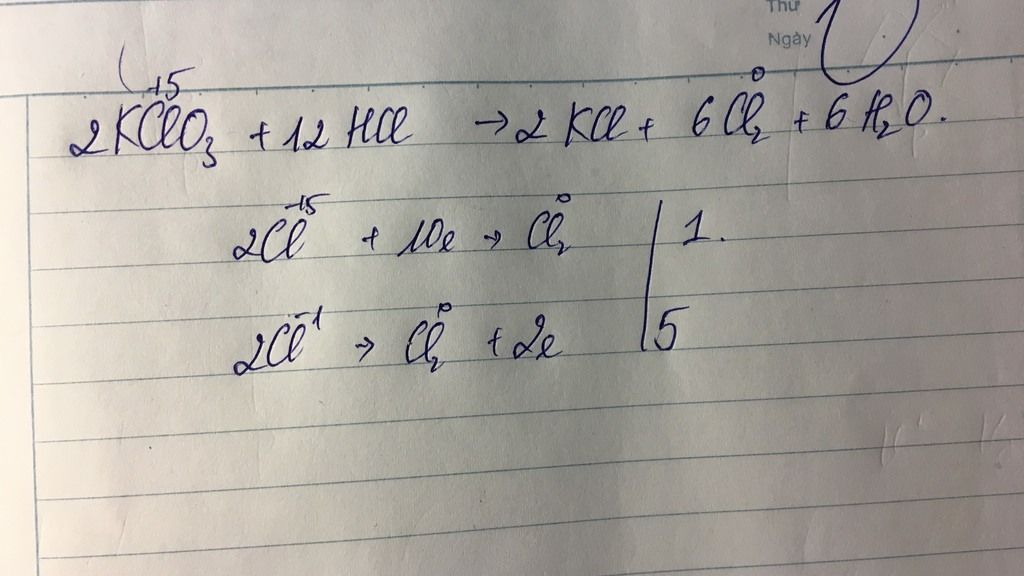 Thứ
Ngày
+5 0
2KClO₃ + 12 HCl → 2 KCl + 6 Cl₂ + 6 H₂O.
2Cl⁺⁵ + 10e → Cl₂⁰ | 1.
2Cl⁻¹ → Cl₂⁰ + 2e | 5